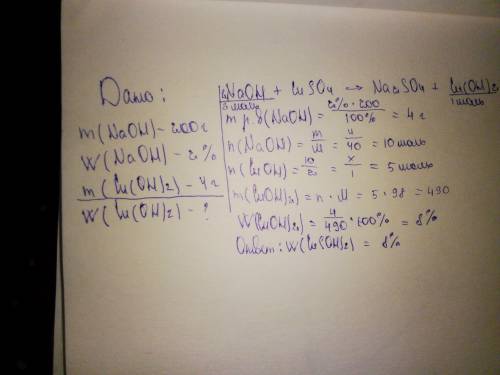 Дано:
m(NaOH) - 200г
W(NaOH) - 2%
m(Cu(OH)2) - 4г
W(Cu(OH)2) - ?
2NaOH + CuSO4 → Na2SO4 + Cu(OH)2
2 моль 1 моль
m р.в(NaOH) = 2% · 200 / 100% = 4 г
n(NaOH) = m/M = 4/40 = 10 моль
n(CuOH) = 10/2 = x/1 = 5 моль
m(Cu(OH)2) = n · M = 5 · 98 = 490
W(Cu(OH)2) = 4/490 · 100% = 8%
Ответ: W(Cu(OH)2) = 8%